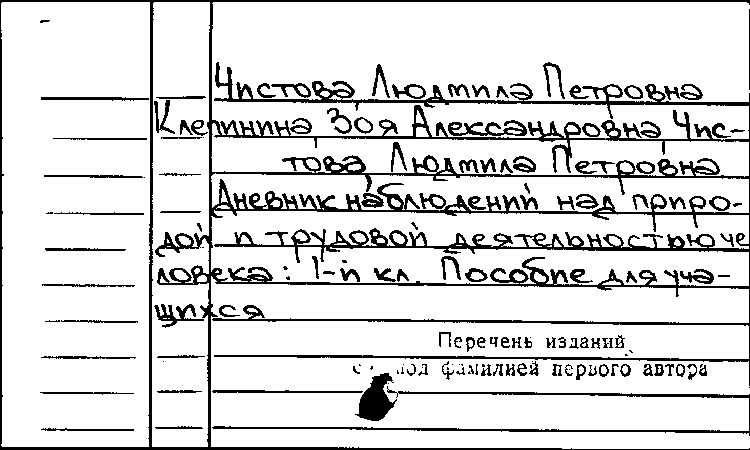 Чистова Людмила Петровна
Клепинина Зоя Александровна Чис-
това Людмила Петровна
Дневник наблюдений над приро-
дой и трудовой деятельностью че
ловека: 1-й кл. Пособие для уча-
щихся
Перечень изданий
под фамилией первого автора